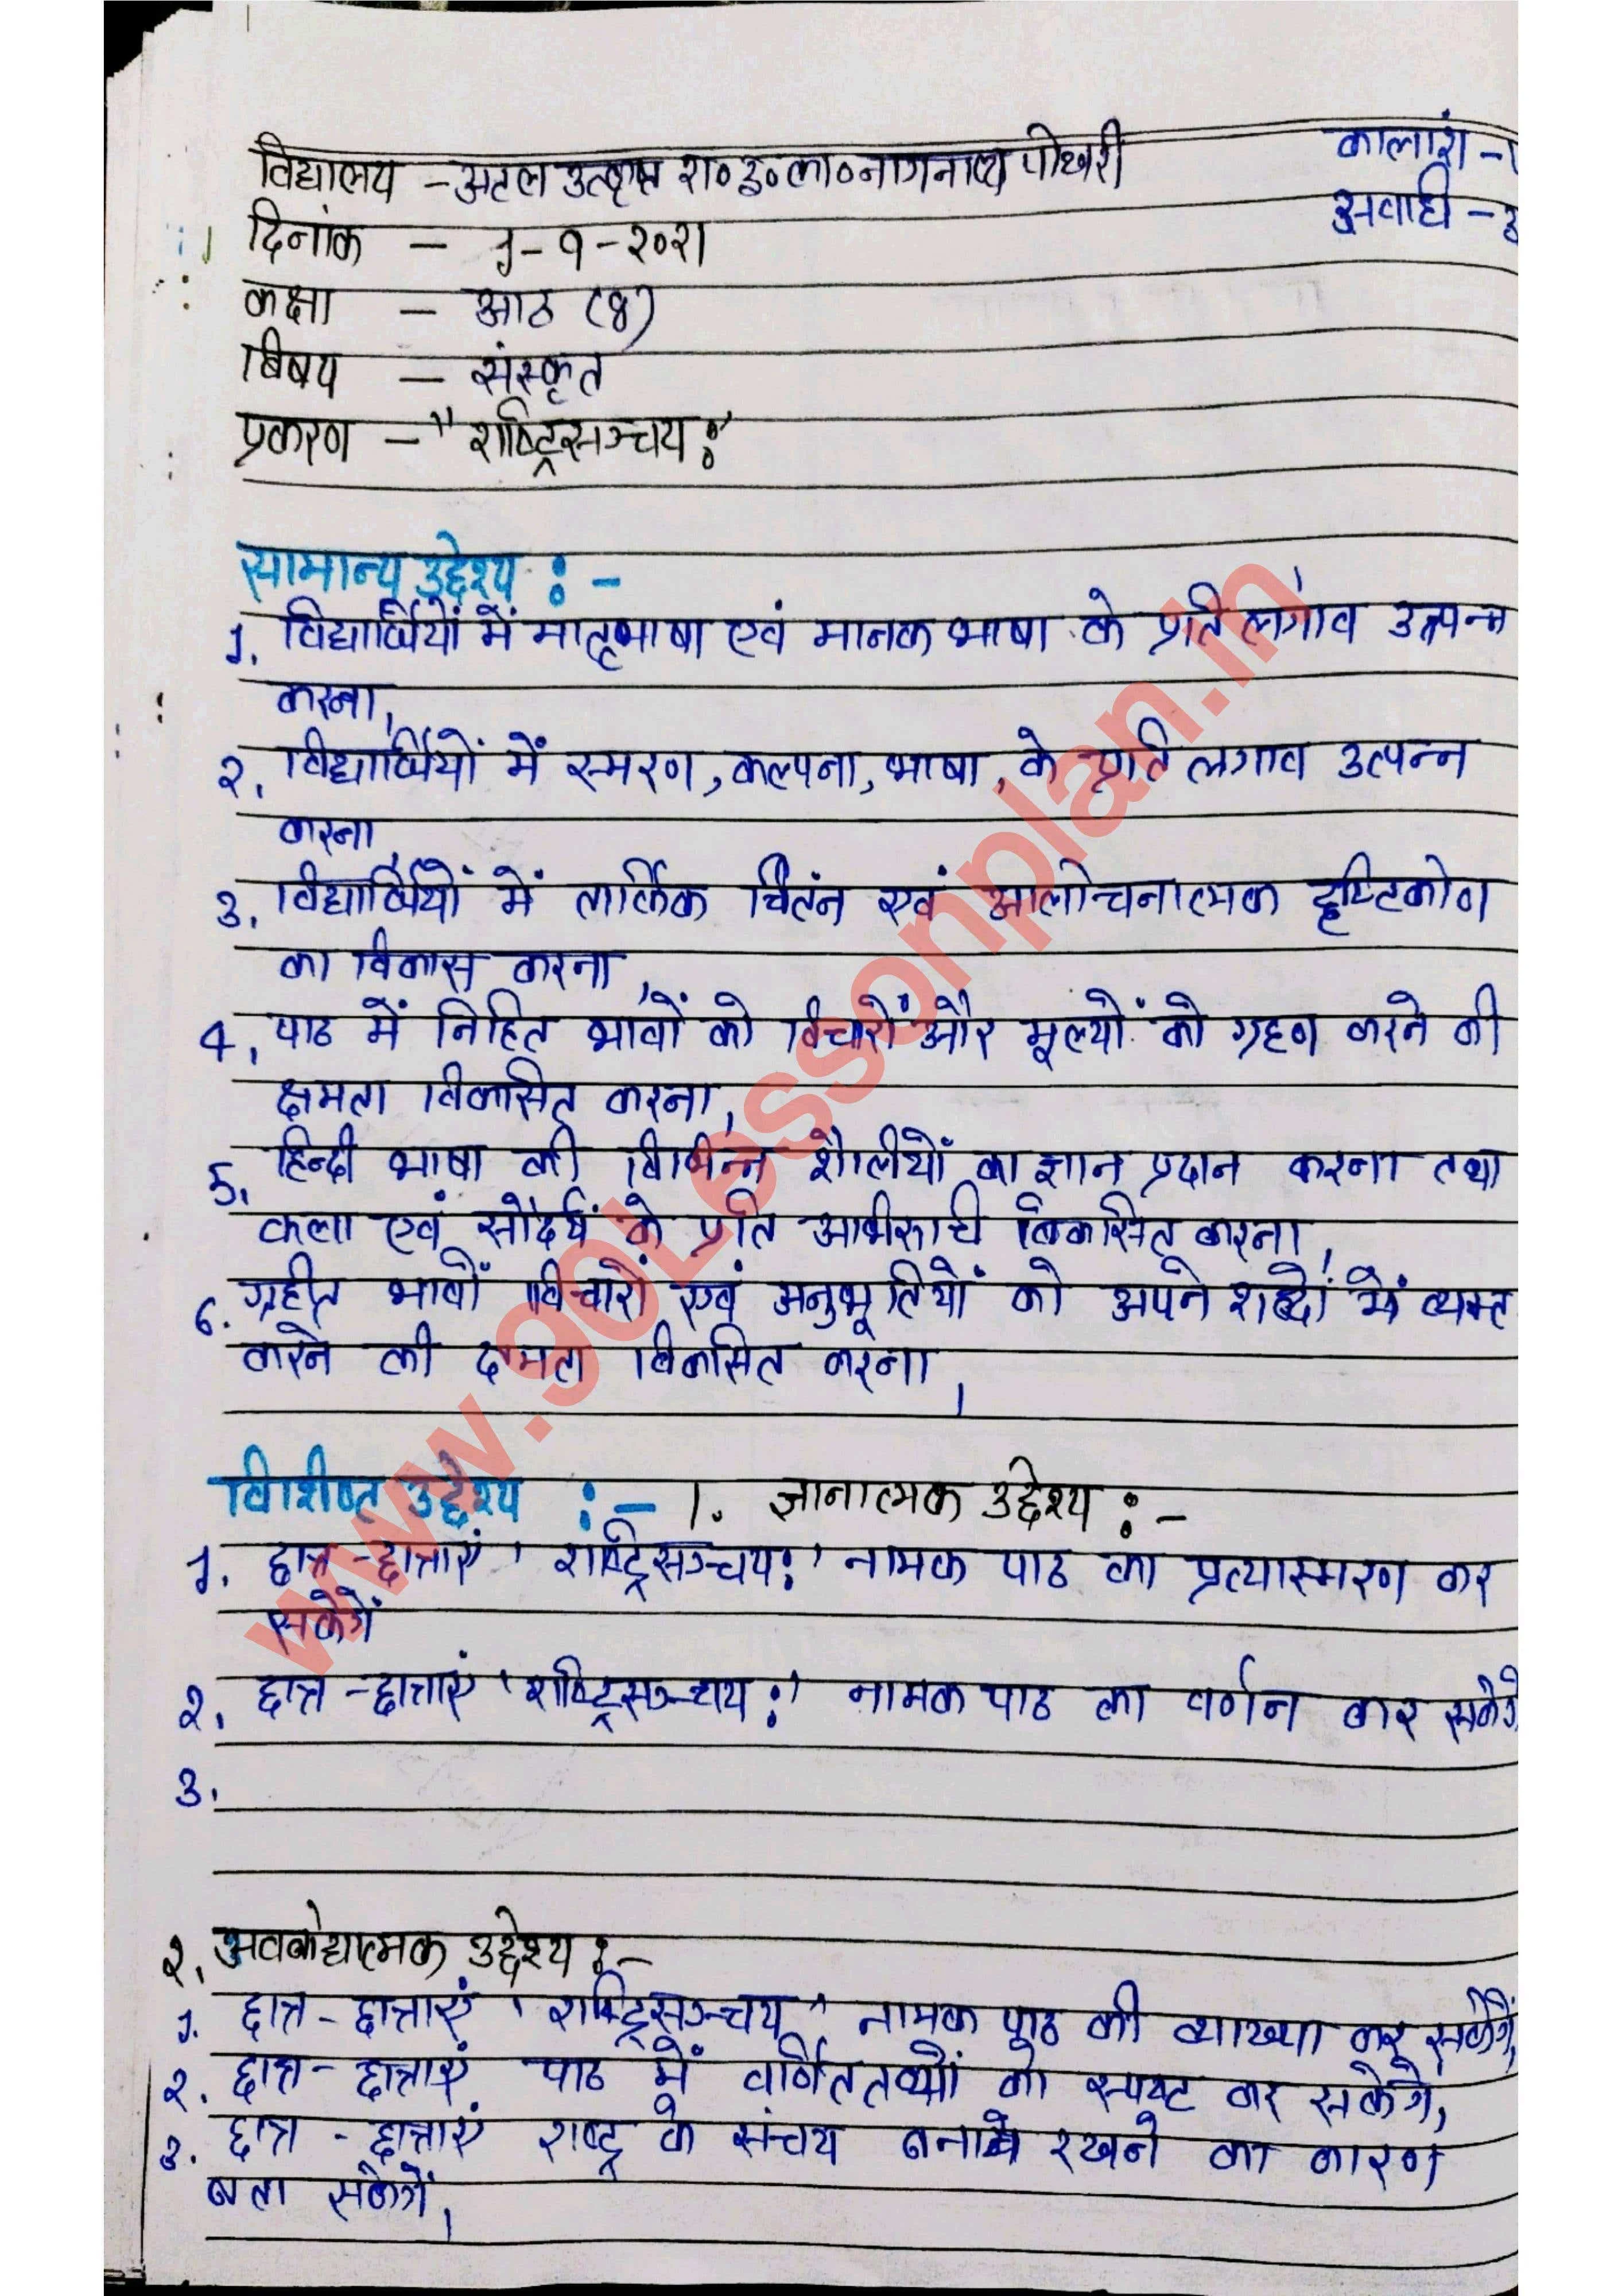 विद्यालय - अटल उत्कृष्ट रा०इ०का०नागनाथ पोखरी
कालांश - 1
अवधि - 3
दिनांक - 1-9-2021
कक्षा - आठ (8)
बिषय - संस्कृत
प्रकरण - "राष्ट्रिसञ्चय:"
सामान्य उद्देश्य :-
1. विद्यार्थियों में मातृभाषा एवं मानक भाषा के प्रति लगाव उत्पन्न
करना,
2. विद्यार्थियों में स्मरण, कल्पना, भाषा, के प्रति लगाव उत्पन्न
करना,
3. विद्यार्थियों में तार्किक चिंतन एवं आलोचनात्मक दृष्टिकोण
का विकास करना,
4. पाठ में निहित भावों को विचारों और मूल्यों को ग्रहण करने की
क्षमता विकसित करना,
5. हिन्दी भाषा की विभिन्न शैलीयों का ज्ञान प्रदान करना तथा
कला एवं सौंदर्य के प्रति अभिरूचि विकसित करना,
6. ग्रहीत भावों विचारों एवं अनुभूतियों को अपने शब्दों में व्यक्त
करने की क्षमता विकसित करना,
विशिष्ट उद्देश्य :- 1. ज्ञानात्मक उद्देश्य :-
1. छात्र-छात्राएं 'राष्ट्रिसञ्चय:' नामक पाठ का प्रत्यास्मरण कर
सकेगें
2. छात्र-छात्राएं 'राष्ट्रिसञ्चय:' नामक पाठ का वर्णन कर सकेगे
3.
2. अवबोधात्मक उद्देश्य :-
1. छात्र-छात्राएं 'राष्ट्रिसञ्चय' नामक पाठ की व्याख्या कर सकेगें,
2. छात्र-छात्राएं पाठ में वर्णित तथ्यों को स्पष्ट कर सकेगे,
3. छात्र-छात्राएं राष्ट्र के संचय बनाये रखने का कारण
बता सकेगें,
www.90Lessonplan.in